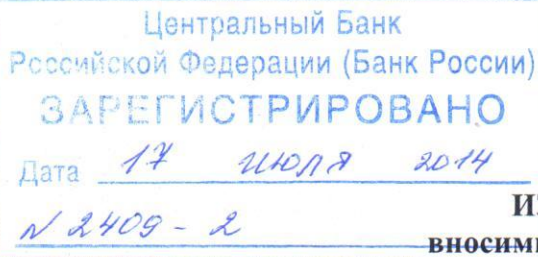 Центральный Банк
Российской Федерации (Банк России)
ЗАРЕГИСТРИРОВАНО
Дата 17 июля 2014
N 2409 - 2